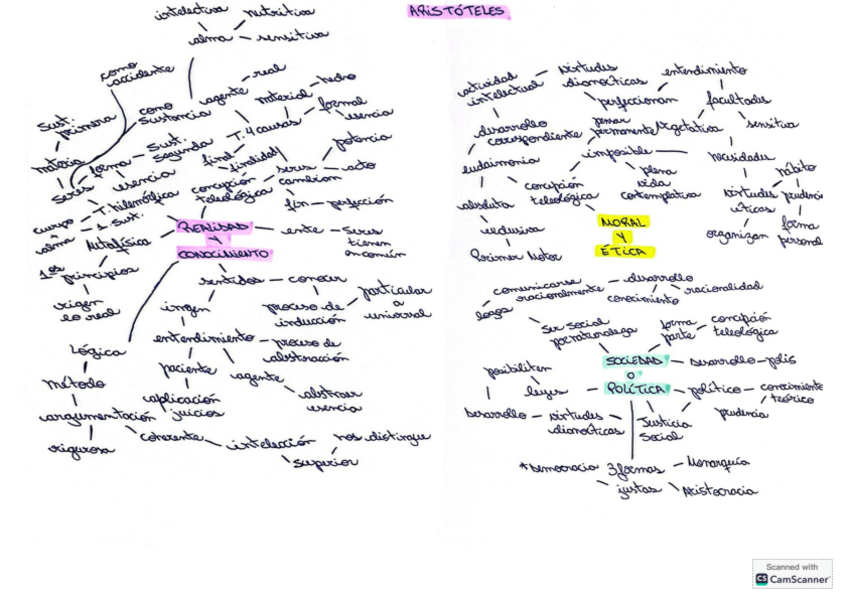 ARISTÓTELES
intelectiva
nutritiva
alma - sensitiva
como
accidente
como
sustancia
agente - real
material - hecho
formal
esencia
T. 4 causas
final
finalidad
Sust.
primera
materia
forma - Sust.
segunda
esencia
seres
T. hilemórfica
cuerpo
alma
1. Sust.
concepción
teleológica
seres
cambian
potencia
acto
fin - perfección
Metafísica
REALIDAD
Y
CONOCIMIENTO
ente - seres
tienen
en común
1os principios
rigen
lo real
sentidos - conocer
proceso de
inducción
particular
a
universal
imgen
entendimiento - proceso de
abstracción
paciente
agente
abstraer
esencia
aplicación
juicios
Lógica
Método
argumentación
rigurosa
coherente
intelección
superior
nos distingue
actividad
intelectual
virtudes
dianoéticas
entendimiento
perfeccionan
facultades
desarrollo
correspondiente
pensar
permanente
vegetativa
sensitiva
eudaimonia
imposible
necesidades
hábito
concepción
teleológica
plena
vida
contemplativa
virtudes
éticas
absoluta
exclusiva
Primer Motor
MORAL
Y
ÉTICA
organizan
forma
personal
comunicarse
racionalmente
desarrollo
conocimiento
racionalidad
logos
Ser social
por naturaleza
forma
parte
concepción
teleológica
SOCIEDAD
O
POLÍTICA
Desarrollo - polis
posibiliten
leyes
político - conocimiento
teórico
prudencia
Desarrollo - virtudes
dianoéticas
Justicia
Social
*Democracia
3 formas
justas
Monarquía
Aristocracia
Scanned with
CS CamScanner